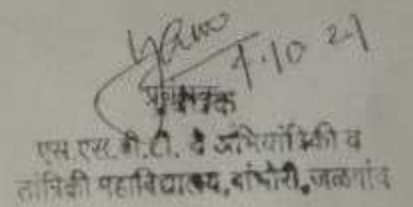 1.10.21
एस.एस.बी.टी. चे अभियांत्रिकी व
तांत्रिकी महाविद्यालय, बांभोरी, जळगांव